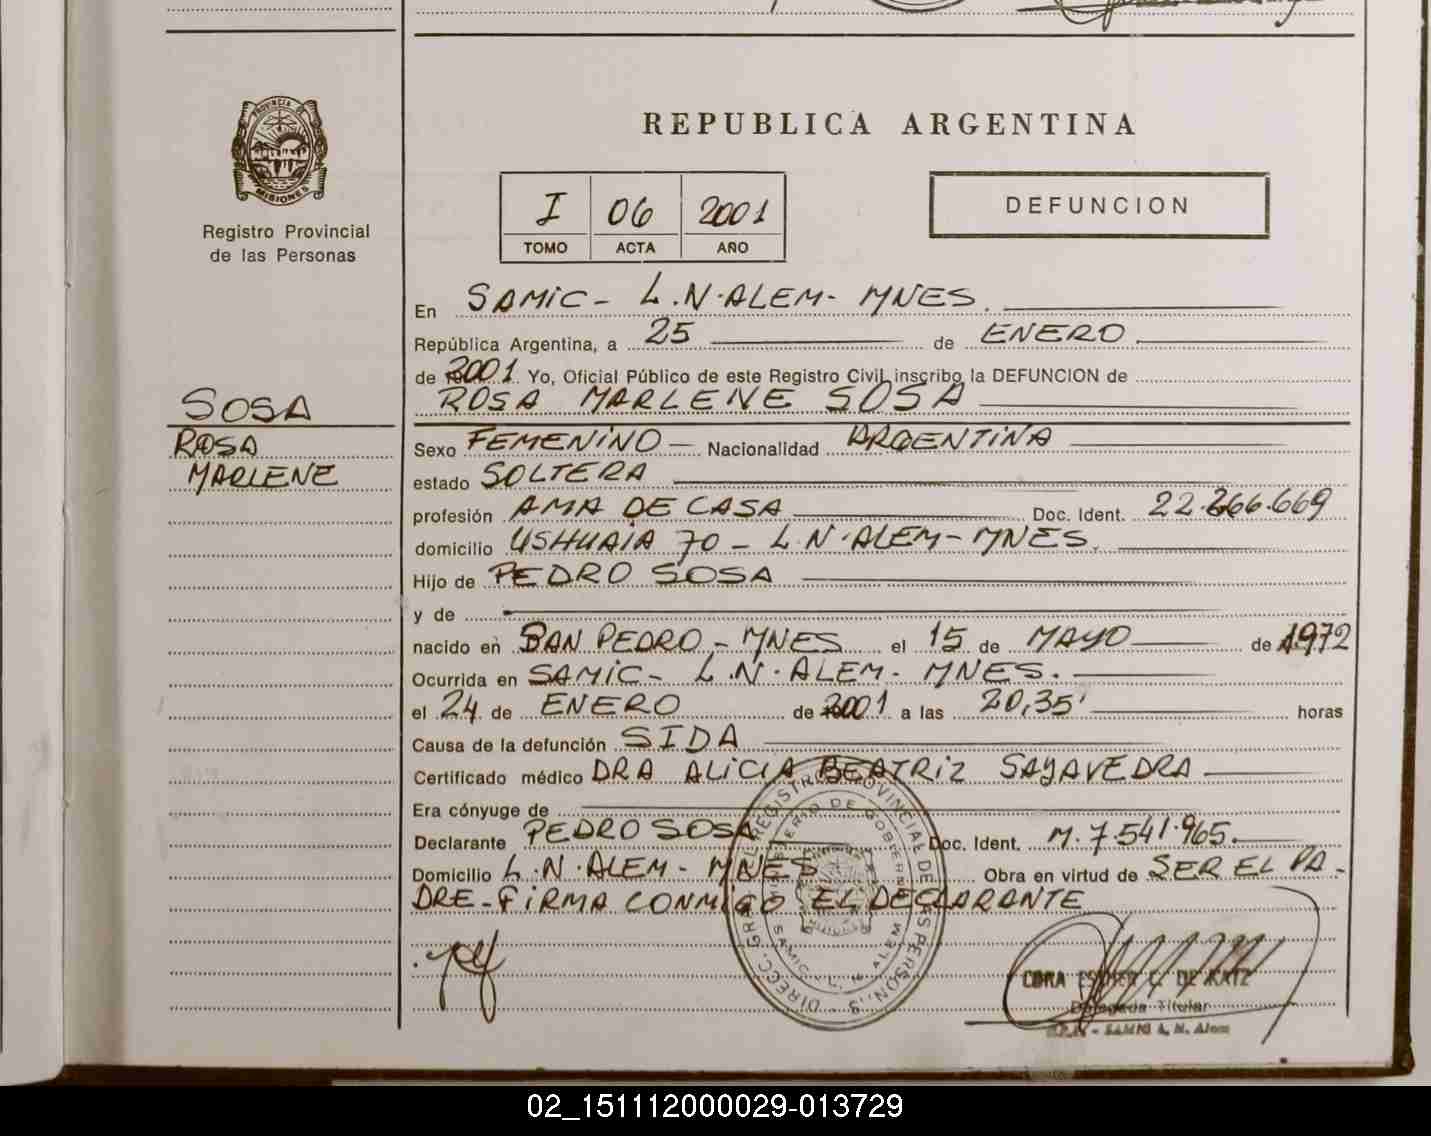 PROVINCIA DE
MISIONES
Registro Provincial
de las Personas
REPUBLICA ARGENTINA
I 06 2001
TOMO ACTA AÑO
DEFUNCION
En SAMIC - L.N. ALEM - MNES.
República Argentina, a 25 de ENERO
de 2001 Yo, Oficial Público de este Registro Civil, inscribo la DEFUNCION de
ROSA MARLENE SOSA
SOSA
ROSA
MARLENE
Sexo FEMENINO Nacionalidad ARGENTINA
estado SOLTERA
profesión AMA DE CASA Doc. Ident. 22.266.669
domicilio USHUAIA 70 - L.N. ALEM - MNES.
Hijo de PEDRO SOSA
y de
nacido en SAN PEDRO - MNES el 15 de MAYO de 1972
Ocurrida en SAMIC - L.N. ALEM - MNES.
el 24 de ENERO de 2001 a las 20,35' horas
Causa de la defunción SIDA
Certificado médico DRA ALICIA BEATRIZ SAYAVEDRA
Era cónyuge de
Declarante PEDRO SOSA Doc. Ident. M. 7.541.965.
Domicilio L.N. ALEM - MNES Obra en virtud de SER EL PA-
DRE - FIRMA CONMIGO EL DECLARANTE
DIRECC. GRAL. REGISTRO PROVINCIAL DE LAS PERSONAS
MINISTERIO DE GOBIERNO
SAMIC - L. N. ALEM
CDRA ESTHER C. DE KATZ
Delegada Titular
SAMIC L. N. Alem
02_151112000029-013729